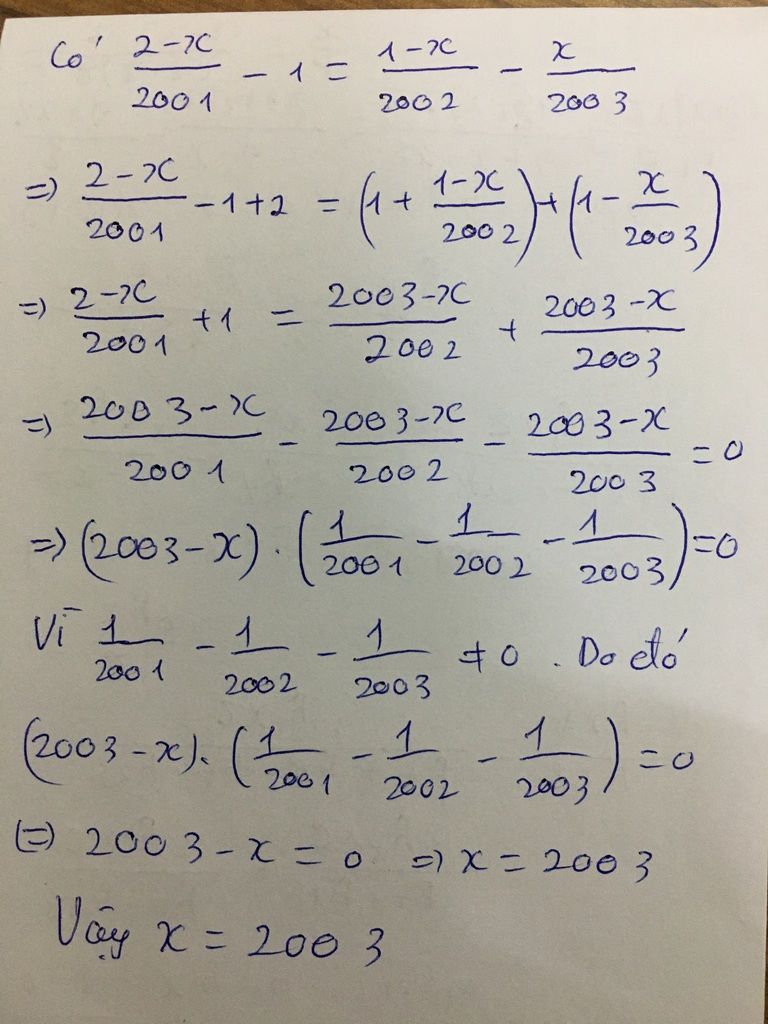 Có (2-x)/2001 - 1 = (1-x)/2002 - x/2003
=> (2-x)/2001 - 1 + 2 = (1 + (1-x)/2002) + (1 - x/2003)
=> (2-x)/2001 + 1 = (2003-x)/2002 + (2003-x)/2003
=> (2003-x)/2001 - (2003-x)/2002 - (2003-x)/2003 = 0
=> (2003-x) . (1/2001 - 1/2002 - 1/2003) = 0
Vì 1/2001 - 1/2002 - 1/2003 ≠ 0 . Do đó
(2003-x) . (1/2001 - 1/2002 - 1/2003) = 0
(=) 2003-x = 0 => x = 2003
Vậy x = 2003